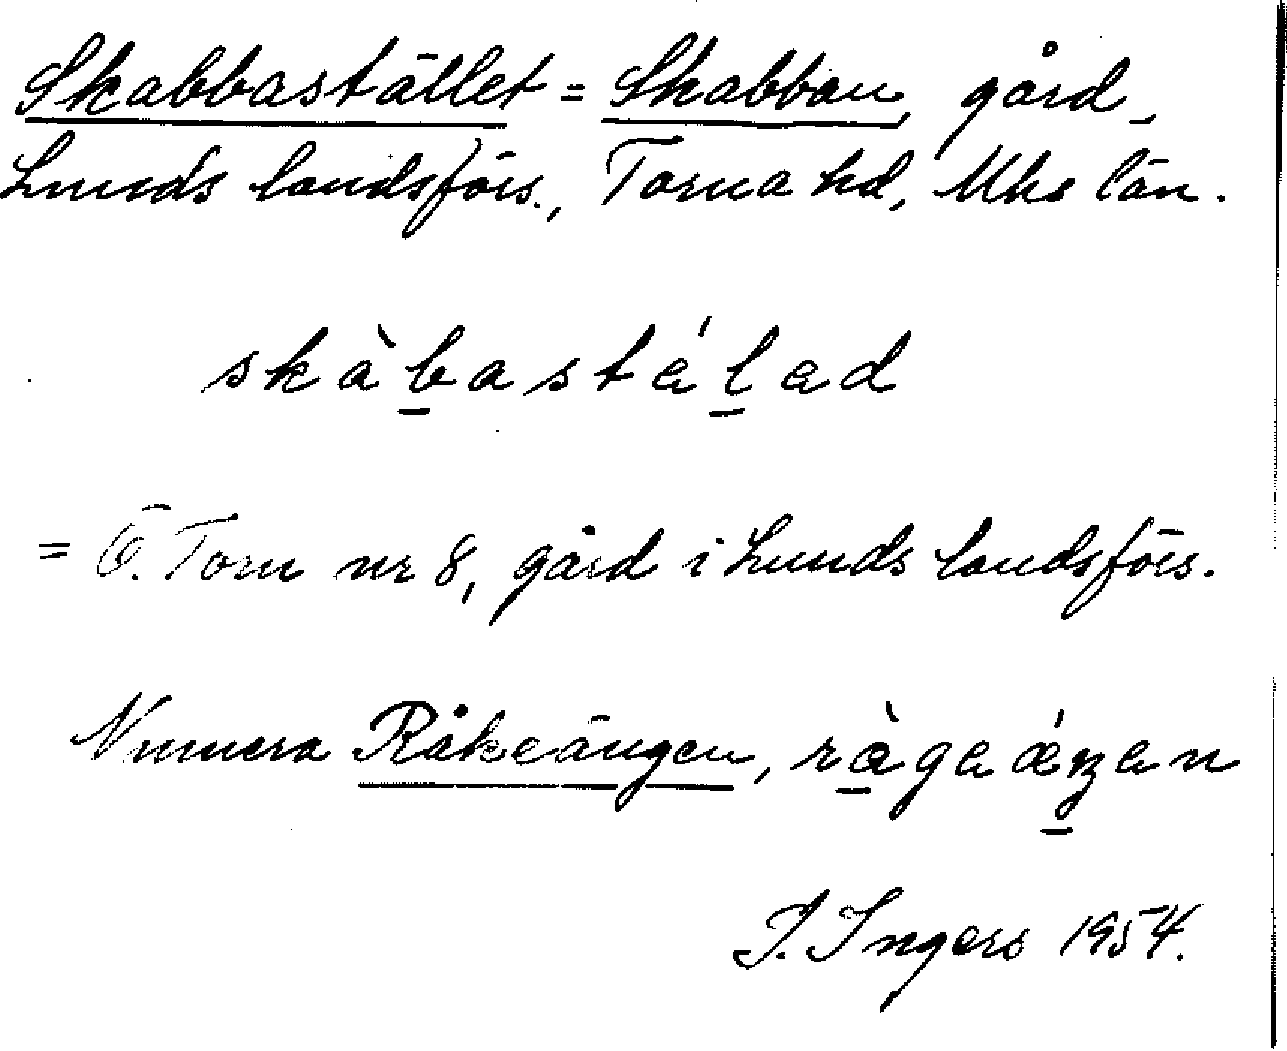 Skabbastället = Skabban, gård,
Lunds landsförs., Torna hd, Mhs län.
skàbastálad
= Ö. Torn nr 8, gård i Lunds landsförs.
Numera Råkeängen, ràgaǽŋan
I. Ingers 1954.